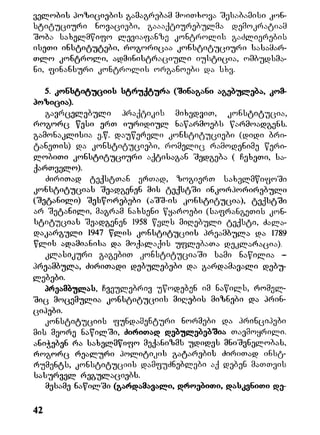 ველობის პოზიციების გამაგრებამ მოითხოვა შესაბამისი კონ-
სტიტუციური ნოვაციები, გააქტიურებულმა დემოკრატიამ
შობა სახელმწიფო ღვიაფანზე კონტროლის გაძლიერების
ისეთი ინსტიტუტები, როგორიცაა კონსტიტუციური სასამარ-
თლო კონტროლი, ადმინისტრაციული იუსტიცია, ომბუდსმა-
ნი, ფინანსური კონტროლის ორგანოები და სხვ.
5. კონსტიტუციის სტრუქტურა (შინაგანი აგებულება, კომ-
პოზიცია).
გავრცელებული პრაქტიკის მიხედვით, კონსტიტუცია,
როგორც წესი ერთ იურიდიულ ნაწარმოებს წარმოადგენს.
გამონაკლისია ე.წ. დაუწერელი კონსტიტუციები (დიდი ბრი-
ტანეთის) და კონსტიტუციები, რომელიც რამოდენიმე წერი-
ლობითი კონსტიტუციური აქტისაგან შედგება ( ჩეხეთი, სა-
ქართველო).
ძირითად ტექსტთან ერთად, ზოგიერთ სახელმწიფოში
კონსტიტუციას შეადგენენ მის ტექსტში ინკორპორირებული
(შეტანილი) შესწორებები (აშშ-ის კონსტიტუცია), ტექსტში
არ შეტანილი, მაგრამ ნახსენი წყაროები (საფრანგეთის კონ-
სტიტუციას შეადგენენ 1958 წელს მიღებული ტექსტი, ძალა-
დაკარგული 1947 წლის კონსტიტუციის პრეამბულა და 1789
წლის ადამიანისა და მოქალაქის უფლებათა დეკლარაცია).
კლასიკური გაგებით კონსტიტუციაში სამი ნაწილია –
პრეამბულა, ძირითადი დებულებები და გარდამავალი დებუ-
ლებები.
პრეამბულას, ჩვეულებრივ უწოდებენ იმ ნაწილს, რომელ-
შიც მოცემულია კონსტიტუციის მიღების მიზნები და პრინ-
ციპები.
კონსტიტუციის ფუნდამენტური ნორმები და პრინციპები
მის მეორე ნაწილში, ძირითად დებულებებშია თავმოყრილი.
ანიჭებენ რა სახელმწიფო მექანიზმს უდიდეს მნიშვნელობას,
როგორც რეალური პოლიტიკის გატარების ძირითად ინსტ-
რუმენტს, კონსტიტუციის დამფუძნებლები აქ დებენ მათთვის
სასურველ რეგულაციებს.
მესამე ნაწილში (გარდამავალი, დროებითი, დასკვნითი დე-
42